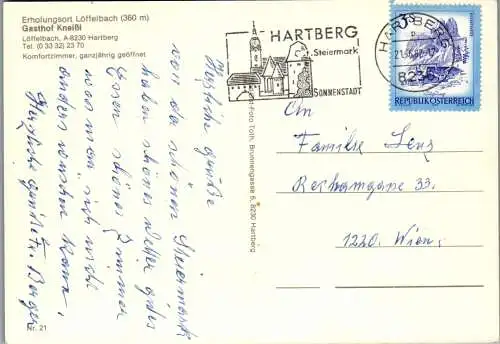 Erholungsort Löffelbach (360 m)
Gasthof Kneißl
Löffelbach, A-8230 Hartberg
Tel. (0 33 32) 23 70
Komfortzimmer, ganzjährig geöffnet
HARTBERG
Steiermark
SONNENSTADT
HARTBERG
8230
S3
REPUBLIK ÖSTERREICH
Herzliche Grüße
von der schönen Steiermark
haben schönes Wetter gutes
Essen schönes Zimmer
was man sich nicht
anders wünschen kann,
Herzliche Grüße Fr. Berger
Foto Toth, Brunnengasse 6, 8230 Hartberg
An
Familie Lenz
33.
1220. Wien,
Nr. 21